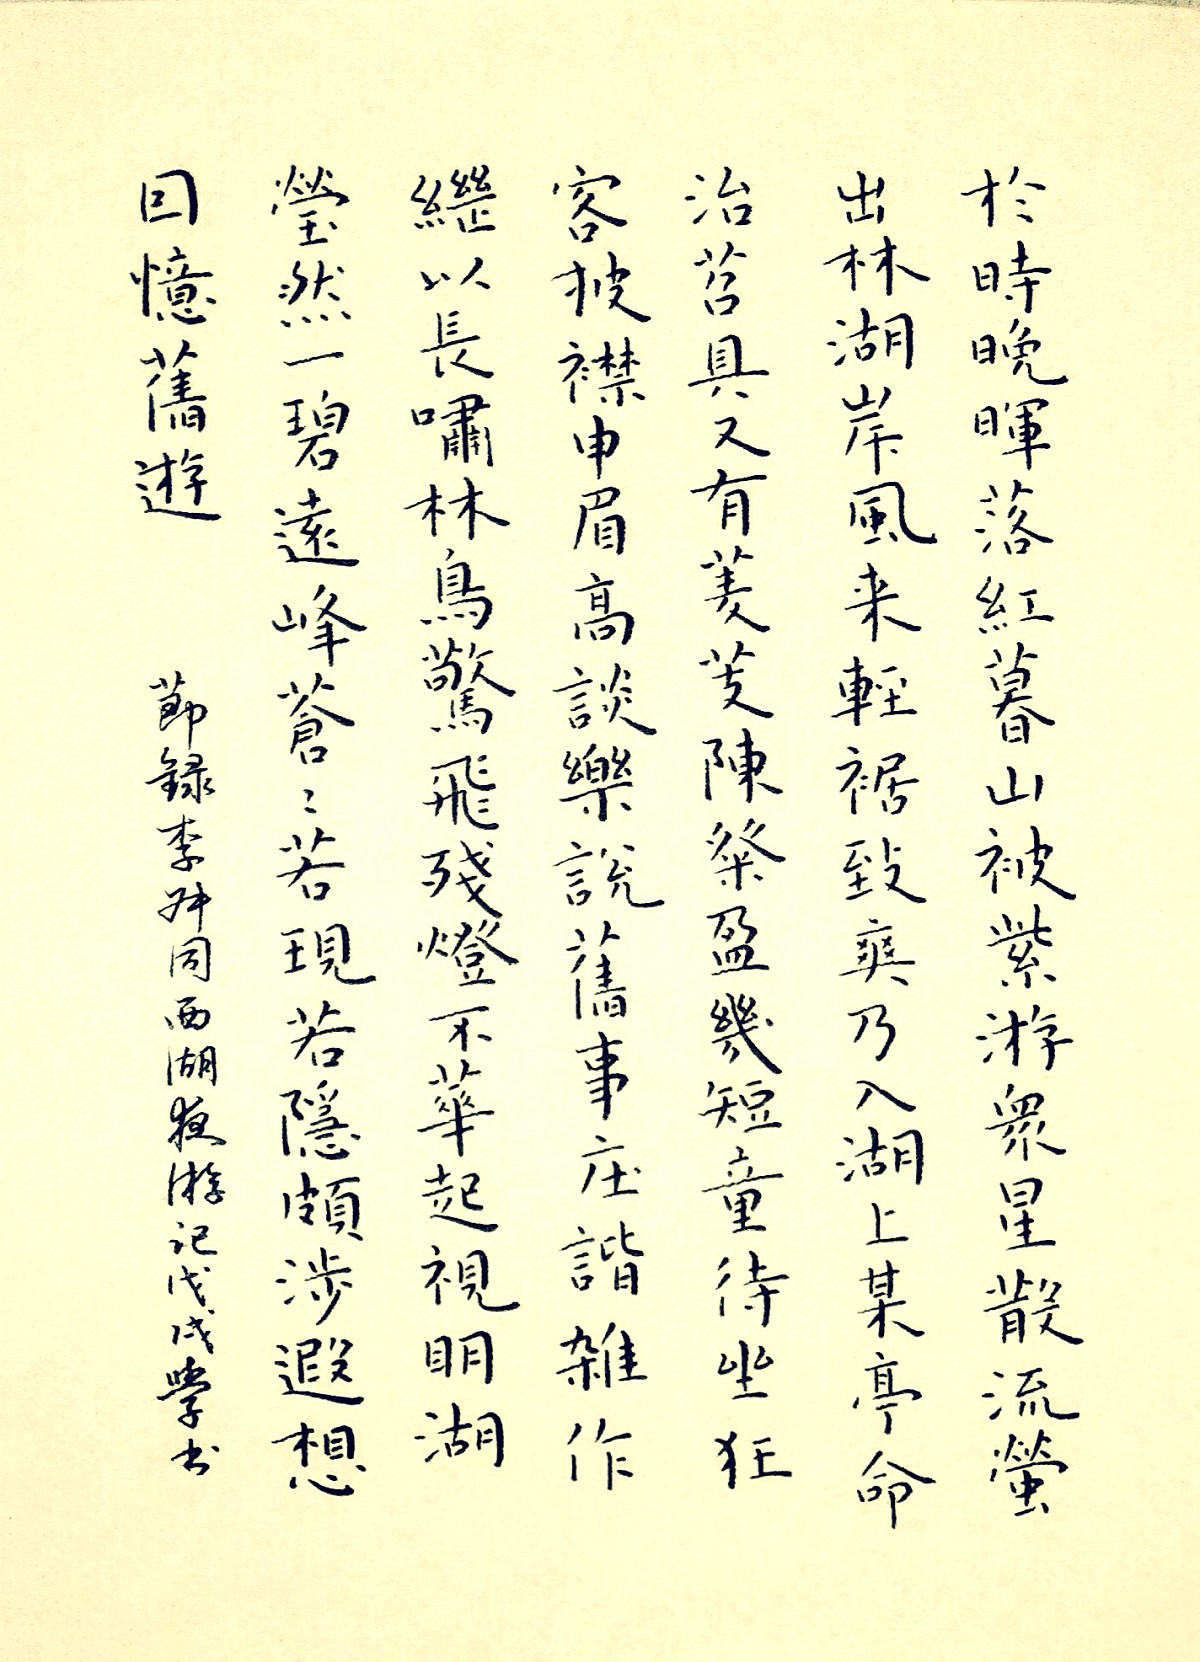 於時晚暉落紅暮山被紫游眾星散流螢
出林湖岸風来輕裾致爽乃入湖上某亭命
治茗具又有菱芡陳粲盈幾短童待坐狂
客披襟申眉高談樂説舊事庄諧雜作
繼以長嘯林鳥驚飛殘燈不華起視明湖
瑩然一碧遠峰蒼〻若現若隱頗涉遐想
回憶舊遊
節録李叔同西湖夜游记戊戌學书